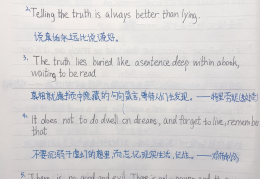 2. Telling the truth is always better than lying.
说真话永远比说谎好。
3. The truth lies buried like a sentence deep within a book,
waiting to be read
真相就像书中隐藏的句子,等待人们去发现。
4. It does not to do dwell on dreams, and forget to live, remember
that
不要沉溺于虚幻的梦里,而忘记现实生活,记住。——邓布利多
5. There is no good and evil. There is only power and th